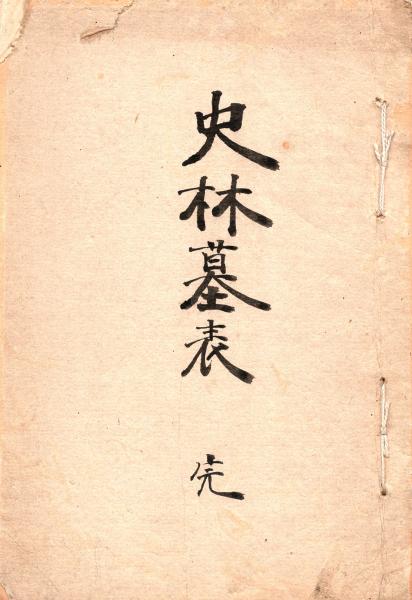 史林墓表 完